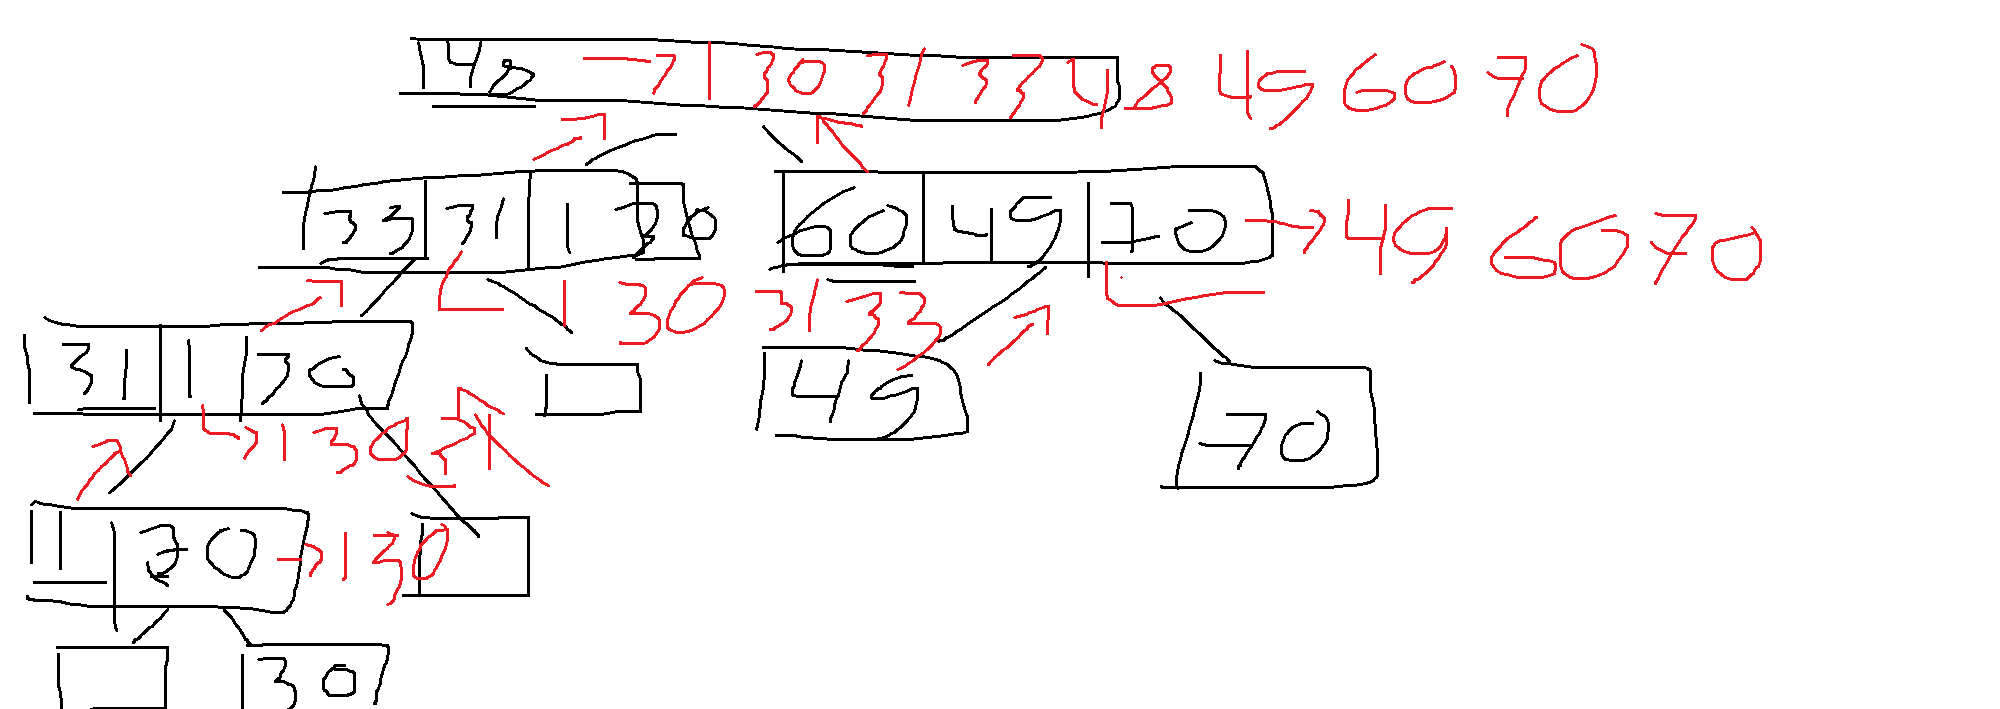 48 → 1 30 31 33 48 49 60 70
33 31 1 30 60 49 70 → 49 60 70
1 30 31 33
31 1 30 49 70
→ 1 30 31
1 30 → 1 30
30